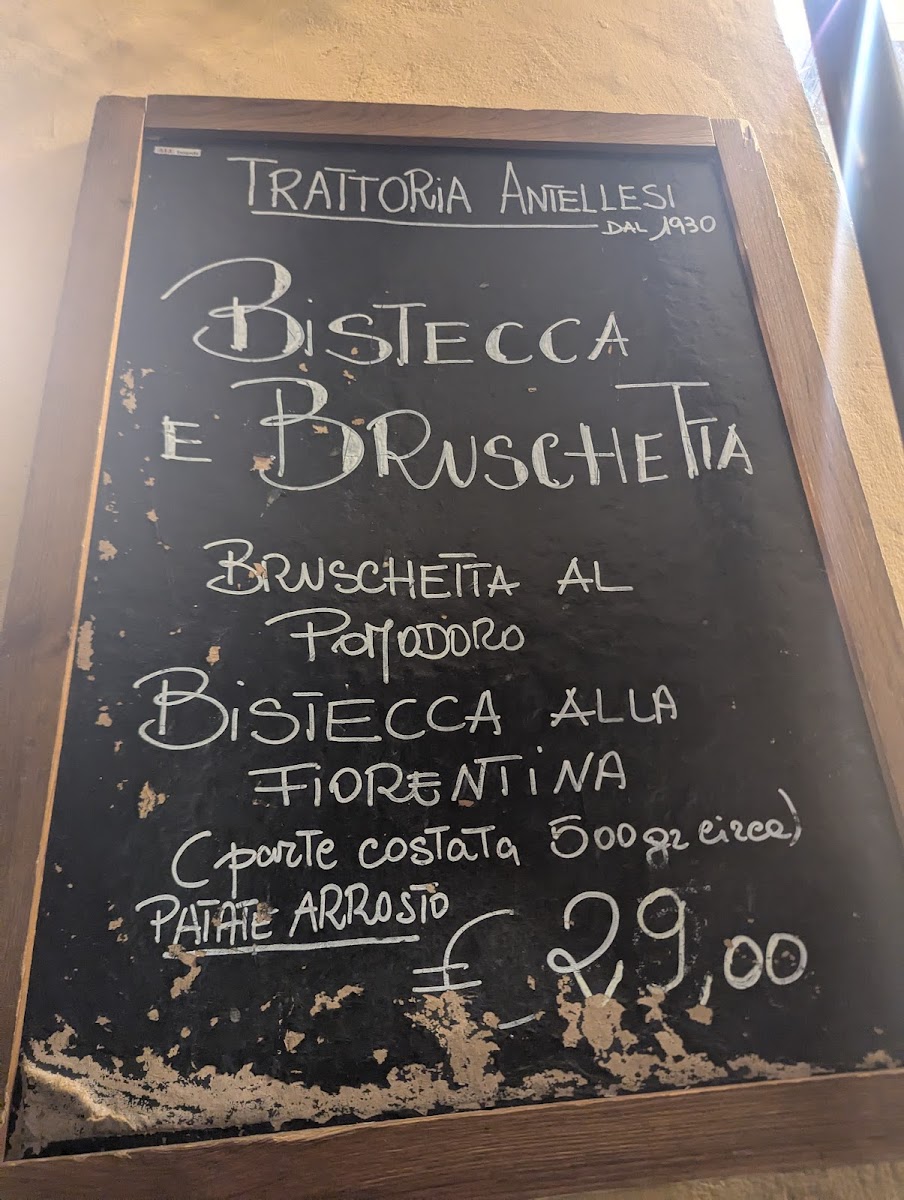 TRATTORIA ANTELLESI
DAL 1930
BISTECCA
E BRUSCHETTA
BRUSCHETTA AL
POMODORO
BISTECCA ALLA
FIORENTINA
(parte costata 500gr circa)
PATATE ARROSTO
€ 29,00